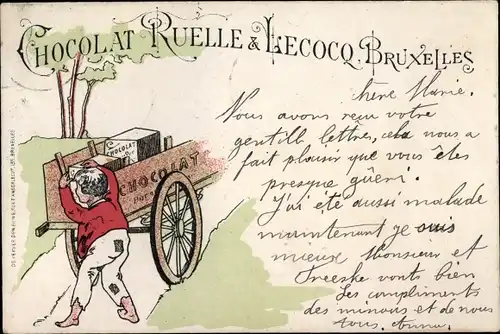 CHOCOLAT RUELLE & LECOCQ. BRUXELLES
chère Marie.
Nous avons reçu votre
gentille lettres, cela nous a
fait plaisir que vous êtes
presque guéri.
J'ai été aussi malade
maintenant je suis
mieux Monsieur et
vont bien
Les compliments
des minous et de nous
tous.
CHOCOLAT
CHOCOLAT
PUR